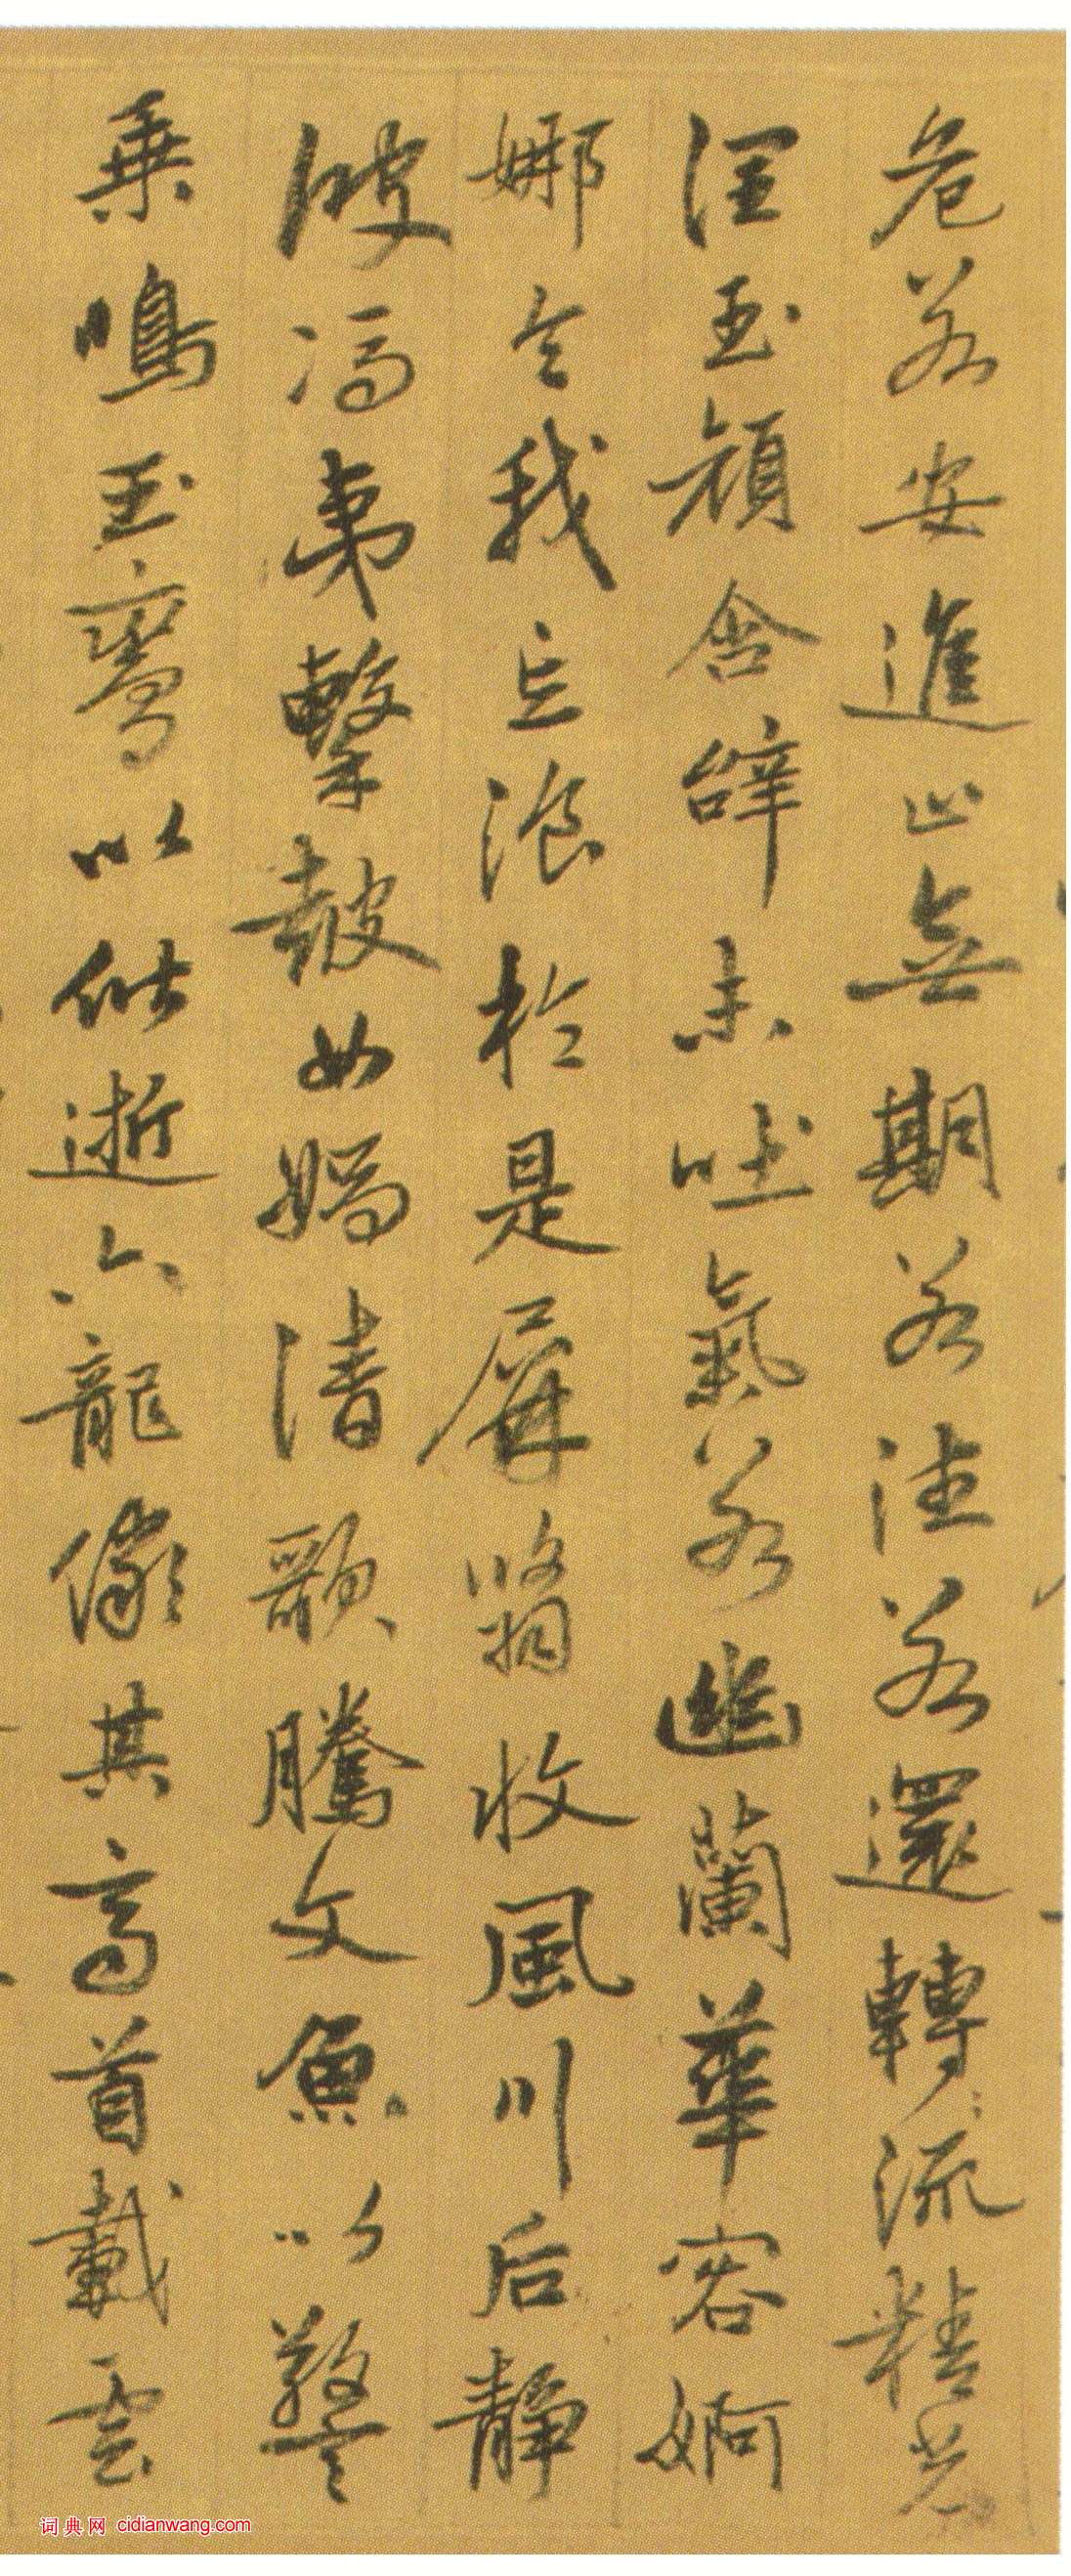 危若安進止無期若往若還轉流精光
潤玉顔含辭未吐氣若幽蘭華容婀
娜令我忘浪於是屏翳收風川后静
波馮夷擊鼓女媧清歌騰文魚以警
乗鳴玉鸞以偕逝六龍儼其高首載雲
词典网 cidianwang.com